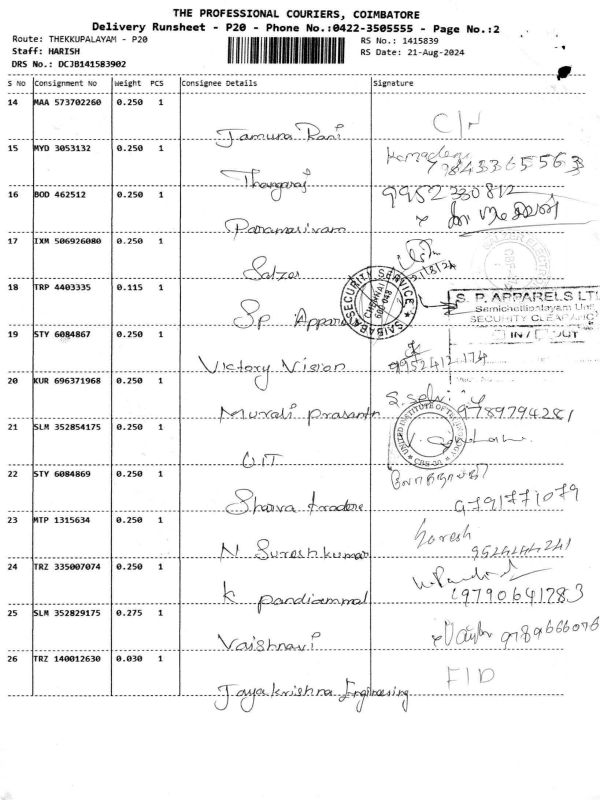 THE PROFESSIONAL COURIERS, COIMBATORE
Delivery Runsheet - P20 - Phone No.:0422-3505555 - Page No.:2
Route: THEKKUPALAYAM - P20
RS No.: 1415839
Staff: HARISH
RS Date: 21-Aug-2024
DRS No.: DCJB141583902
S No Consignment No Weight PCS Consignee Details Signature
14 MAA 573702260 0.250 1
Jamuna Rani C/N
15 MYD 3053132 0.250 1
Thangaraj
16 BOD 462512 0.250 1
9952330812
Paramasivam
17 IXM 506926080 0.250 1
Salzer 21/8/24
SAIBABA SECURITY SERVICE
CHENNAI
600 048
18 TRP 4403335 0.115 1
S. P. APPARELS LTD
Semichettipalayam Unit
SECURITY CLEARANCE
IN / OUT
SP Apparels
19 STY 6084867 0.250 1
Victory Vision 9952412174
20 KUR 696371968 0.250 1
S. Selvi
Murali prasanth 9789794281
21 SLM 352854175 0.250 1
UNITED INSTITUTE OF TECHNOLOGY
UIT
22 STY 6084869 0.250 1
Sharva traders 9791771079
23 MTP 1315634 0.250 1
Suresh
N. Suresh kumar 9524444241
24 TRZ 335007074 0.250 1
K pandiammal 9790641283
25 SLM 352829175 0.275 1
Vaishnavi
26 TRZ 140012630 0.030 1
Jayakrishna Engineering F/D